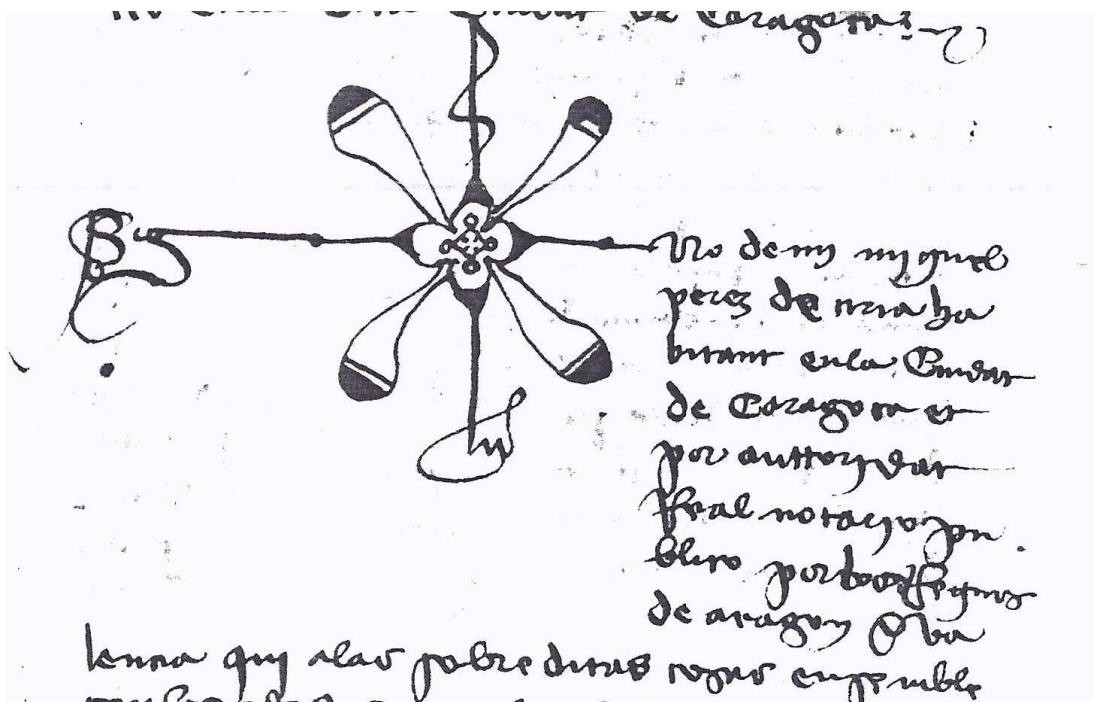 Ciudat de Caragoça
Sig
no de mj mjguel
perez de ciria ha
bitant enla Ciudat
de Caragoça et
por auttorjdat
Real notarjo pu
blico por los Regnos
de aragon & va
lencia quj alas sobreditas cosas ensemble